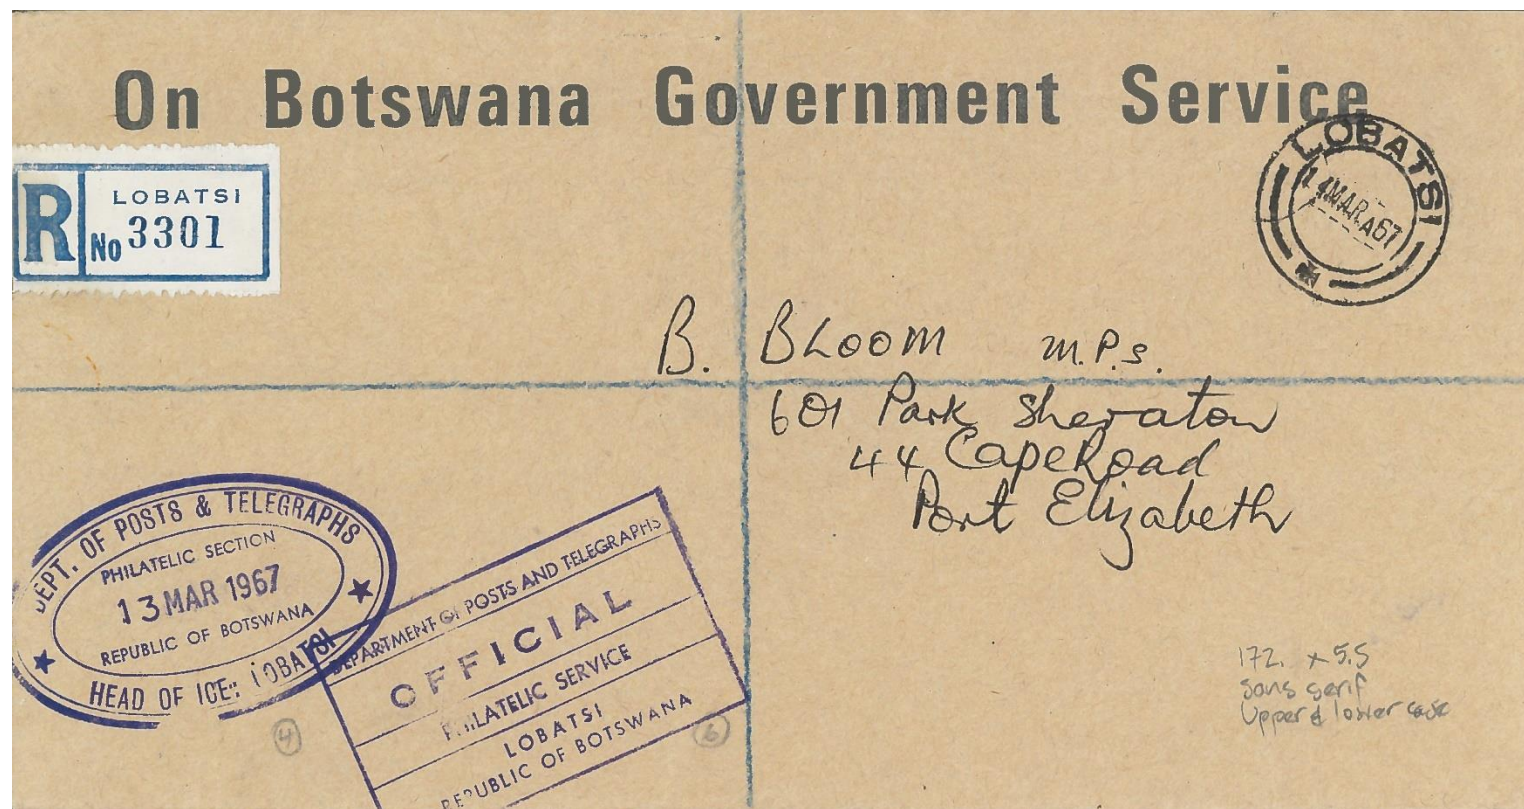 On Botswana Government Service
LOBATSI
R No 3301
LOBATSI
14 MAR A 67
B. BLOOM M.P.S.
601 Park Sheraton
44 Cape Road
Port Elizabeth
DEPT. OF POSTS & TELEGRAPHS
PHILATELIC SECTION
13 MAR 1967
REPUBLIC OF BOTSWANA
HEAD OF ICE: LOBATSI
DEPARTMENT OF POSTS AND TELEGRAPHS
OFFICIAL
PHILATELIC SERVICE
LOBATSI
REPUBLIC OF BOTSWANA
4
6
172. x 5.5
Sans serif
Upper & lower case